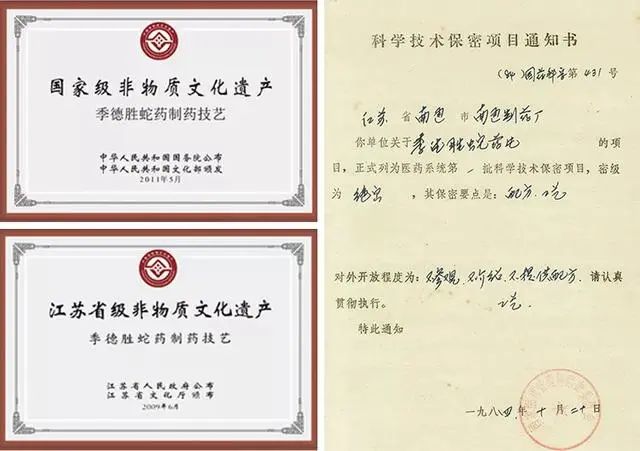 国家级非物质文化遗产
季德胜蛇药制药技艺
中华人民共和国国务院公布
中华人民共和国文化部颁发
2011年5月
江苏省级非物质文化遗产
季德胜蛇药制药技艺
江苏省人民政府公布
江苏省文化厅颁布
2009年6月
科学技术保密项目通知书
(84)国药科字第431号
江苏省南通市南通制药厂
你单位关于季德胜蛇药片的项
目，正式列为医药系统第一批科学技术保密项目，密级
为绝密，其保密要点是：配方、工艺
对外开放程度为：不参观、不介绍、不提供配方、请认真
工艺.
贯彻执行。
特此通知
一九八四年十月二十日